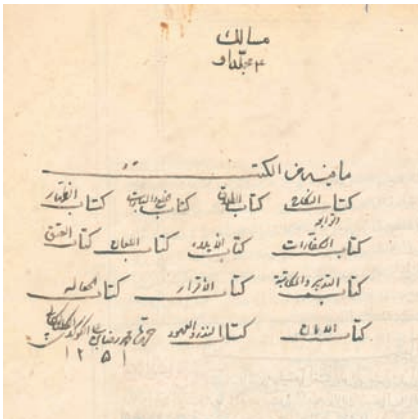 مسالك
ما فيه من الكتب
كتاب النكاح كتاب الطلاق كتاب الخلع والمبارات كتاب الظهار
كتاب الكفارات كتاب الايلاء كتاب اللعان كتاب العتق
كتاب التدبير والمكاتبة كتاب الأقرار كتاب الجعاله
كتاب الأيمان كتاب النذر والعهود
١٢٥١